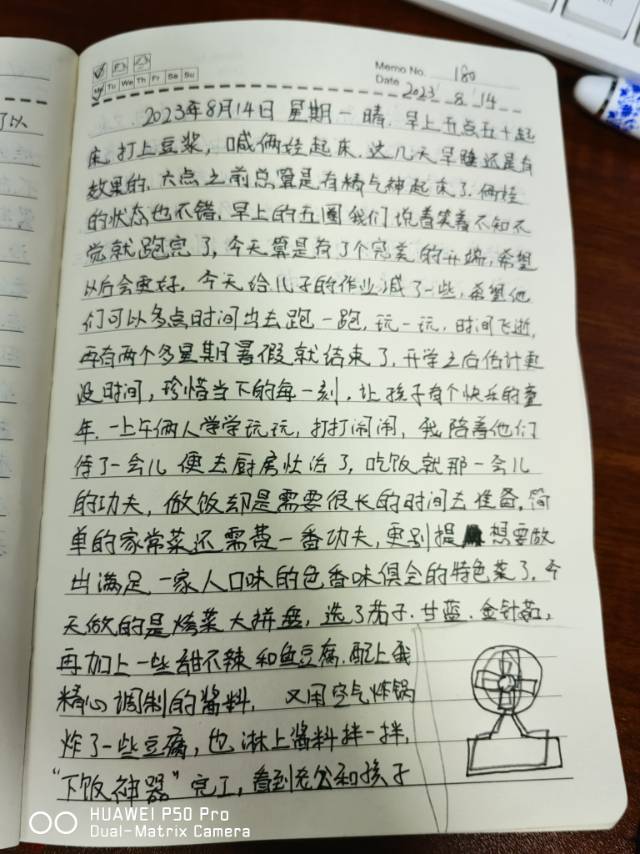 了以
Memo No. 180
Mo Tu We Th Fr Sa Su
Date 2023 8 14
2023年8月14日 星期一 晴. 早上五点五十起
床, 打上豆浆, 喊俩娃起床. 这几天早睡还是有
效果的, 六点之前总算是有精气神起床了. 俩娃
的状态也不错, 早上的五圈我们说着笑着不知不
觉就跑完了, 今天算是有了个完美的开端, 希望
以后会更好. 今天给儿子的作业减了一些, 希望他
们可以多点时间出去跑一跑, 玩一玩, 时间飞逝,
再有两个多星期暑假就结束了, 开学之后估计更
没时间, 珍惜当下的每一刻. 让孩子有个快乐的童
年. 一上午俩人学学玩玩, 打打闹闹, 我陪着他们
待了一会儿便去厨房忙活了, 吃饭就那一会儿
的功夫, 做饭却是需要很长的时间去准备, 简
单的家常菜还需费一番功夫, 更别提想要做
出满足一家人口味的色香味俱全的特色菜了. 今
天做的是烤菜大拼盘, 选了茄子. 甘蓝. 金针菇,
再加上一些甜不辣和鱼豆腐. 配上我
精心调制的酱料. 又用空气炸锅
炸了一些豆腐, 也淋上酱料拌一拌,
"下饭神器"完工, 看到老公和孩子
HUAWEI P50 Pro
Dual-Matrix Camera